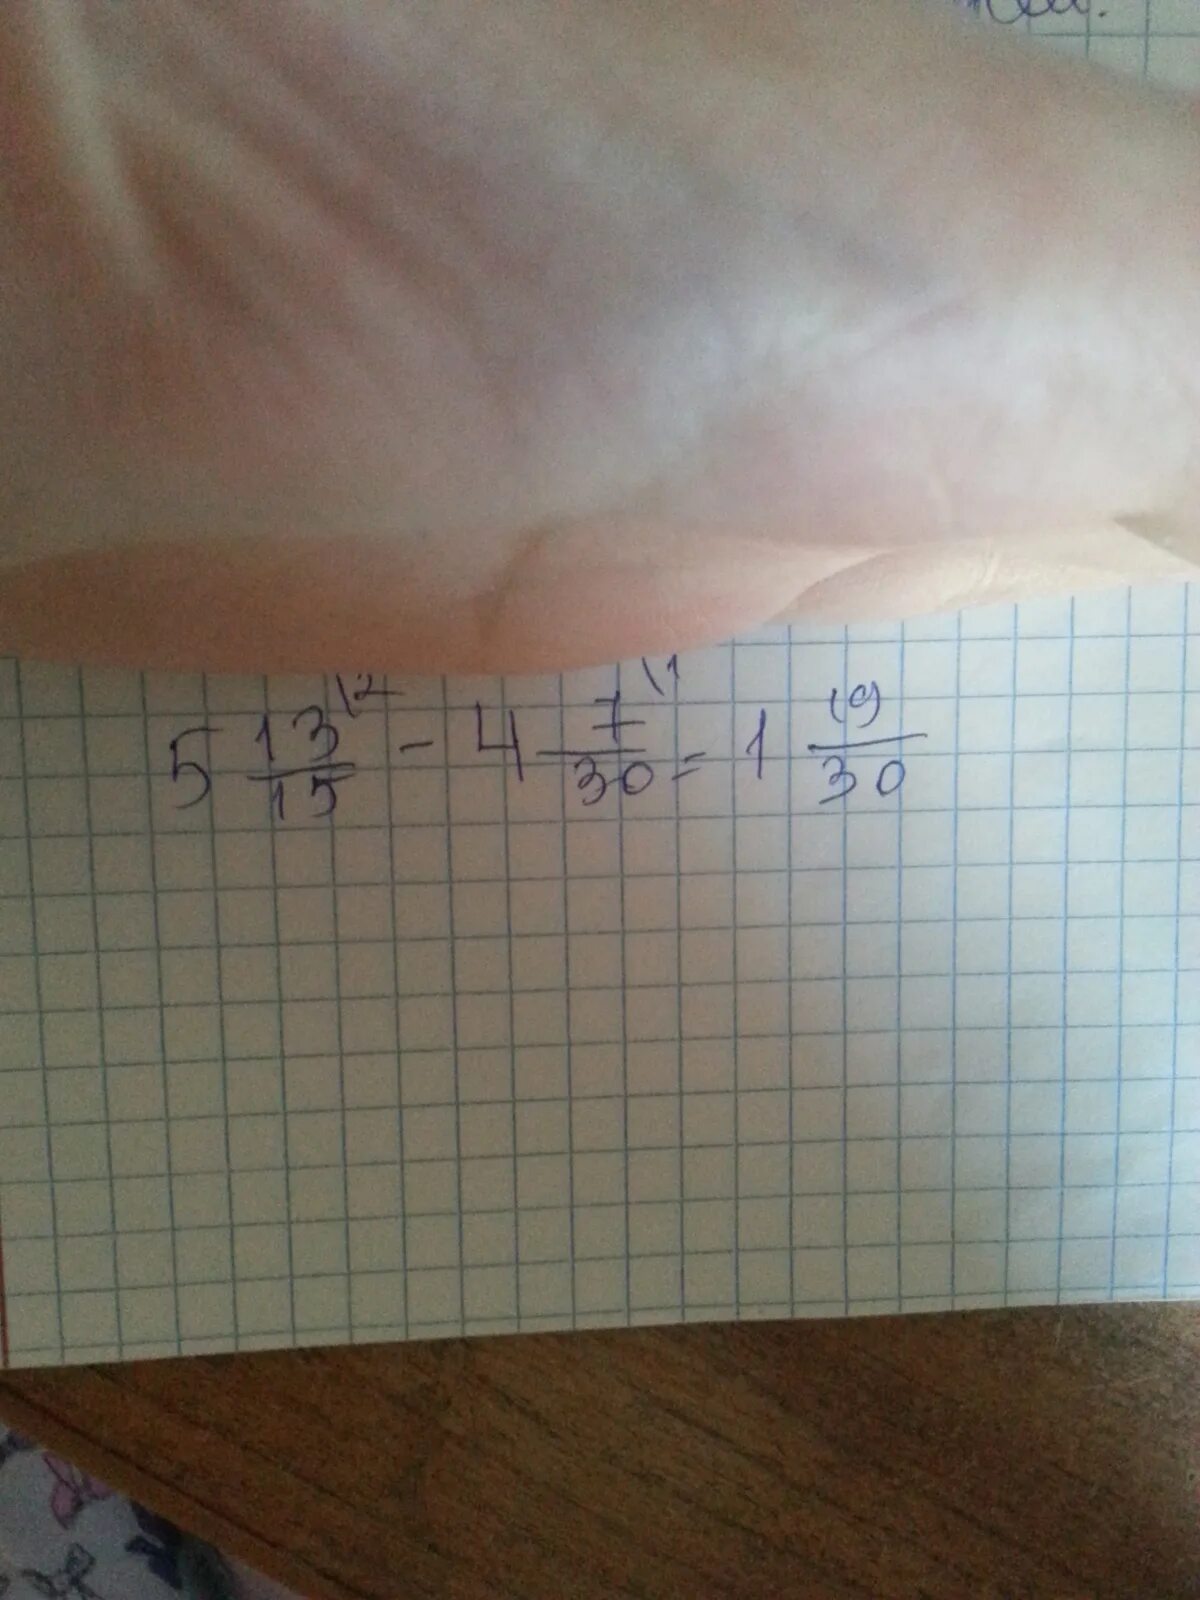 5 13/15 \2 - 4 7/30 \1 = 1 19/30